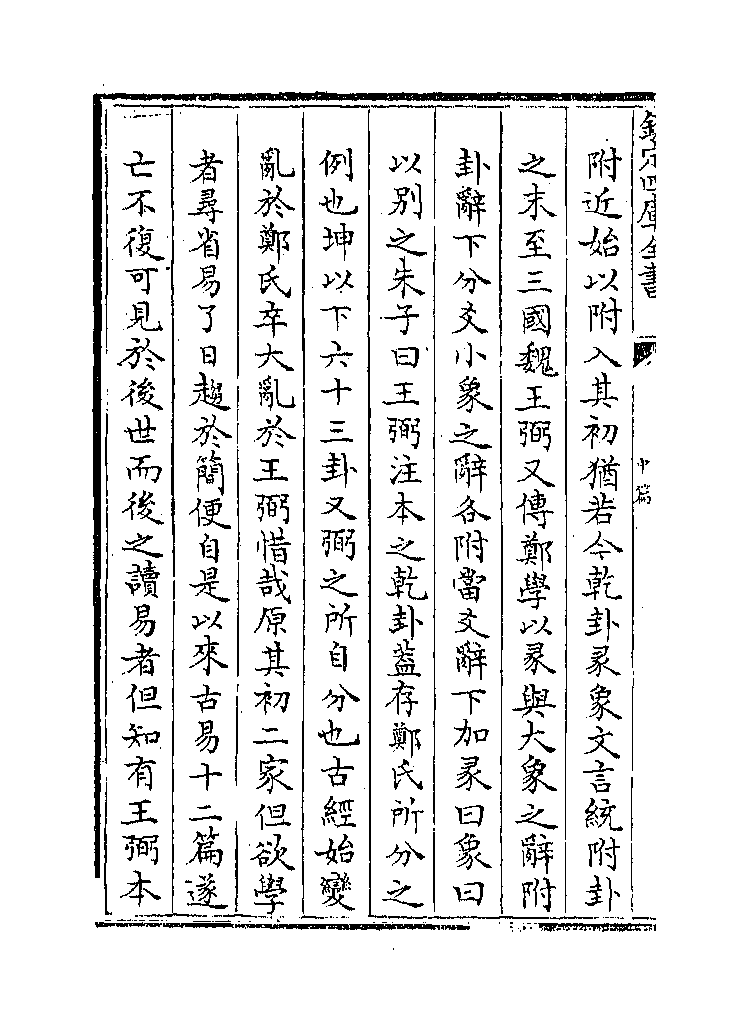 欽定四庫全書
中篇
附近始以附入其初猶若今乾卦彖象文言統附卦
之末至三國魏王弼又傳鄭學以彖與大象之辭附
卦辭下分爻小象之辭各附當爻辭下加彖曰象曰
以别之朱子曰王弼注本之乾卦葢存鄭氏所分之
例也坤以下六十三卦又弼之所自分也古經始變
亂於鄭氏卒大亂於王弼惜哉原其初二家但欲學
者尋省易了日趨於簡便自是以來古易十二篇遂
亡不復可見於後世而後之讀易者但知有王弼本